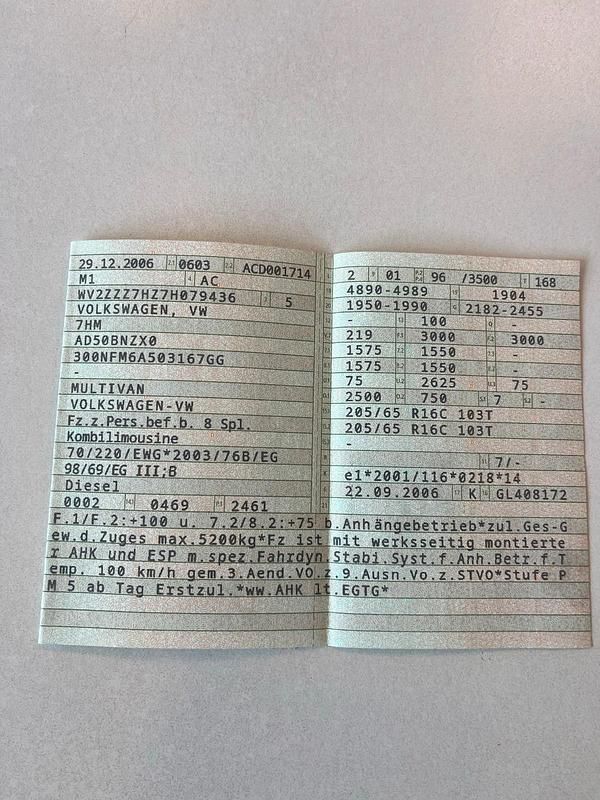 29.12.2006 0603 ACD001714
M1 AC
WV2ZZZ7HZ7H079436 5
VOLKSWAGEN, VW
7HM
AD50BNZX0
300NFM6A503167GG
-
MULTIVAN
VOLKSWAGEN-VW
Fz.z.Pers.bef.b. 8 Spl.
Kombilimousine
70/220/EWG*2003/76B/EG
98/69/EG III;B
Diesel
0002 0469 2461
2 01 96 /3500 168
4890-4989 1904
1950-1990 2182-2455
- 100 -
219 3000 3000
1575 1550 -
1575 1550 -
75 2625 75
2500 750 7 -
205/65 R16C 103T
205/65 R16C 103T
-
7/-
e1*2001/116*0218*14
22.09.2006 K GL408172
F.1/F.2:+100 u. 7.2/8.2:+75 b.Anhängebetrieb*zul.Ges-G
ew.d.Zuges max.5200kg*Fz ist mit werksseitig montierte
r AHK und ESP m.spez.Fahrdyn.Stabi.Syst.f.Anh.Betr.f.T
emp. 100 km/h gem.3.Aend.VO.z.9.Ausn.Vo.z.STVO*Stufe P
M 5 ab Tag Erstzul.*ww.AHK lt.EGTG*